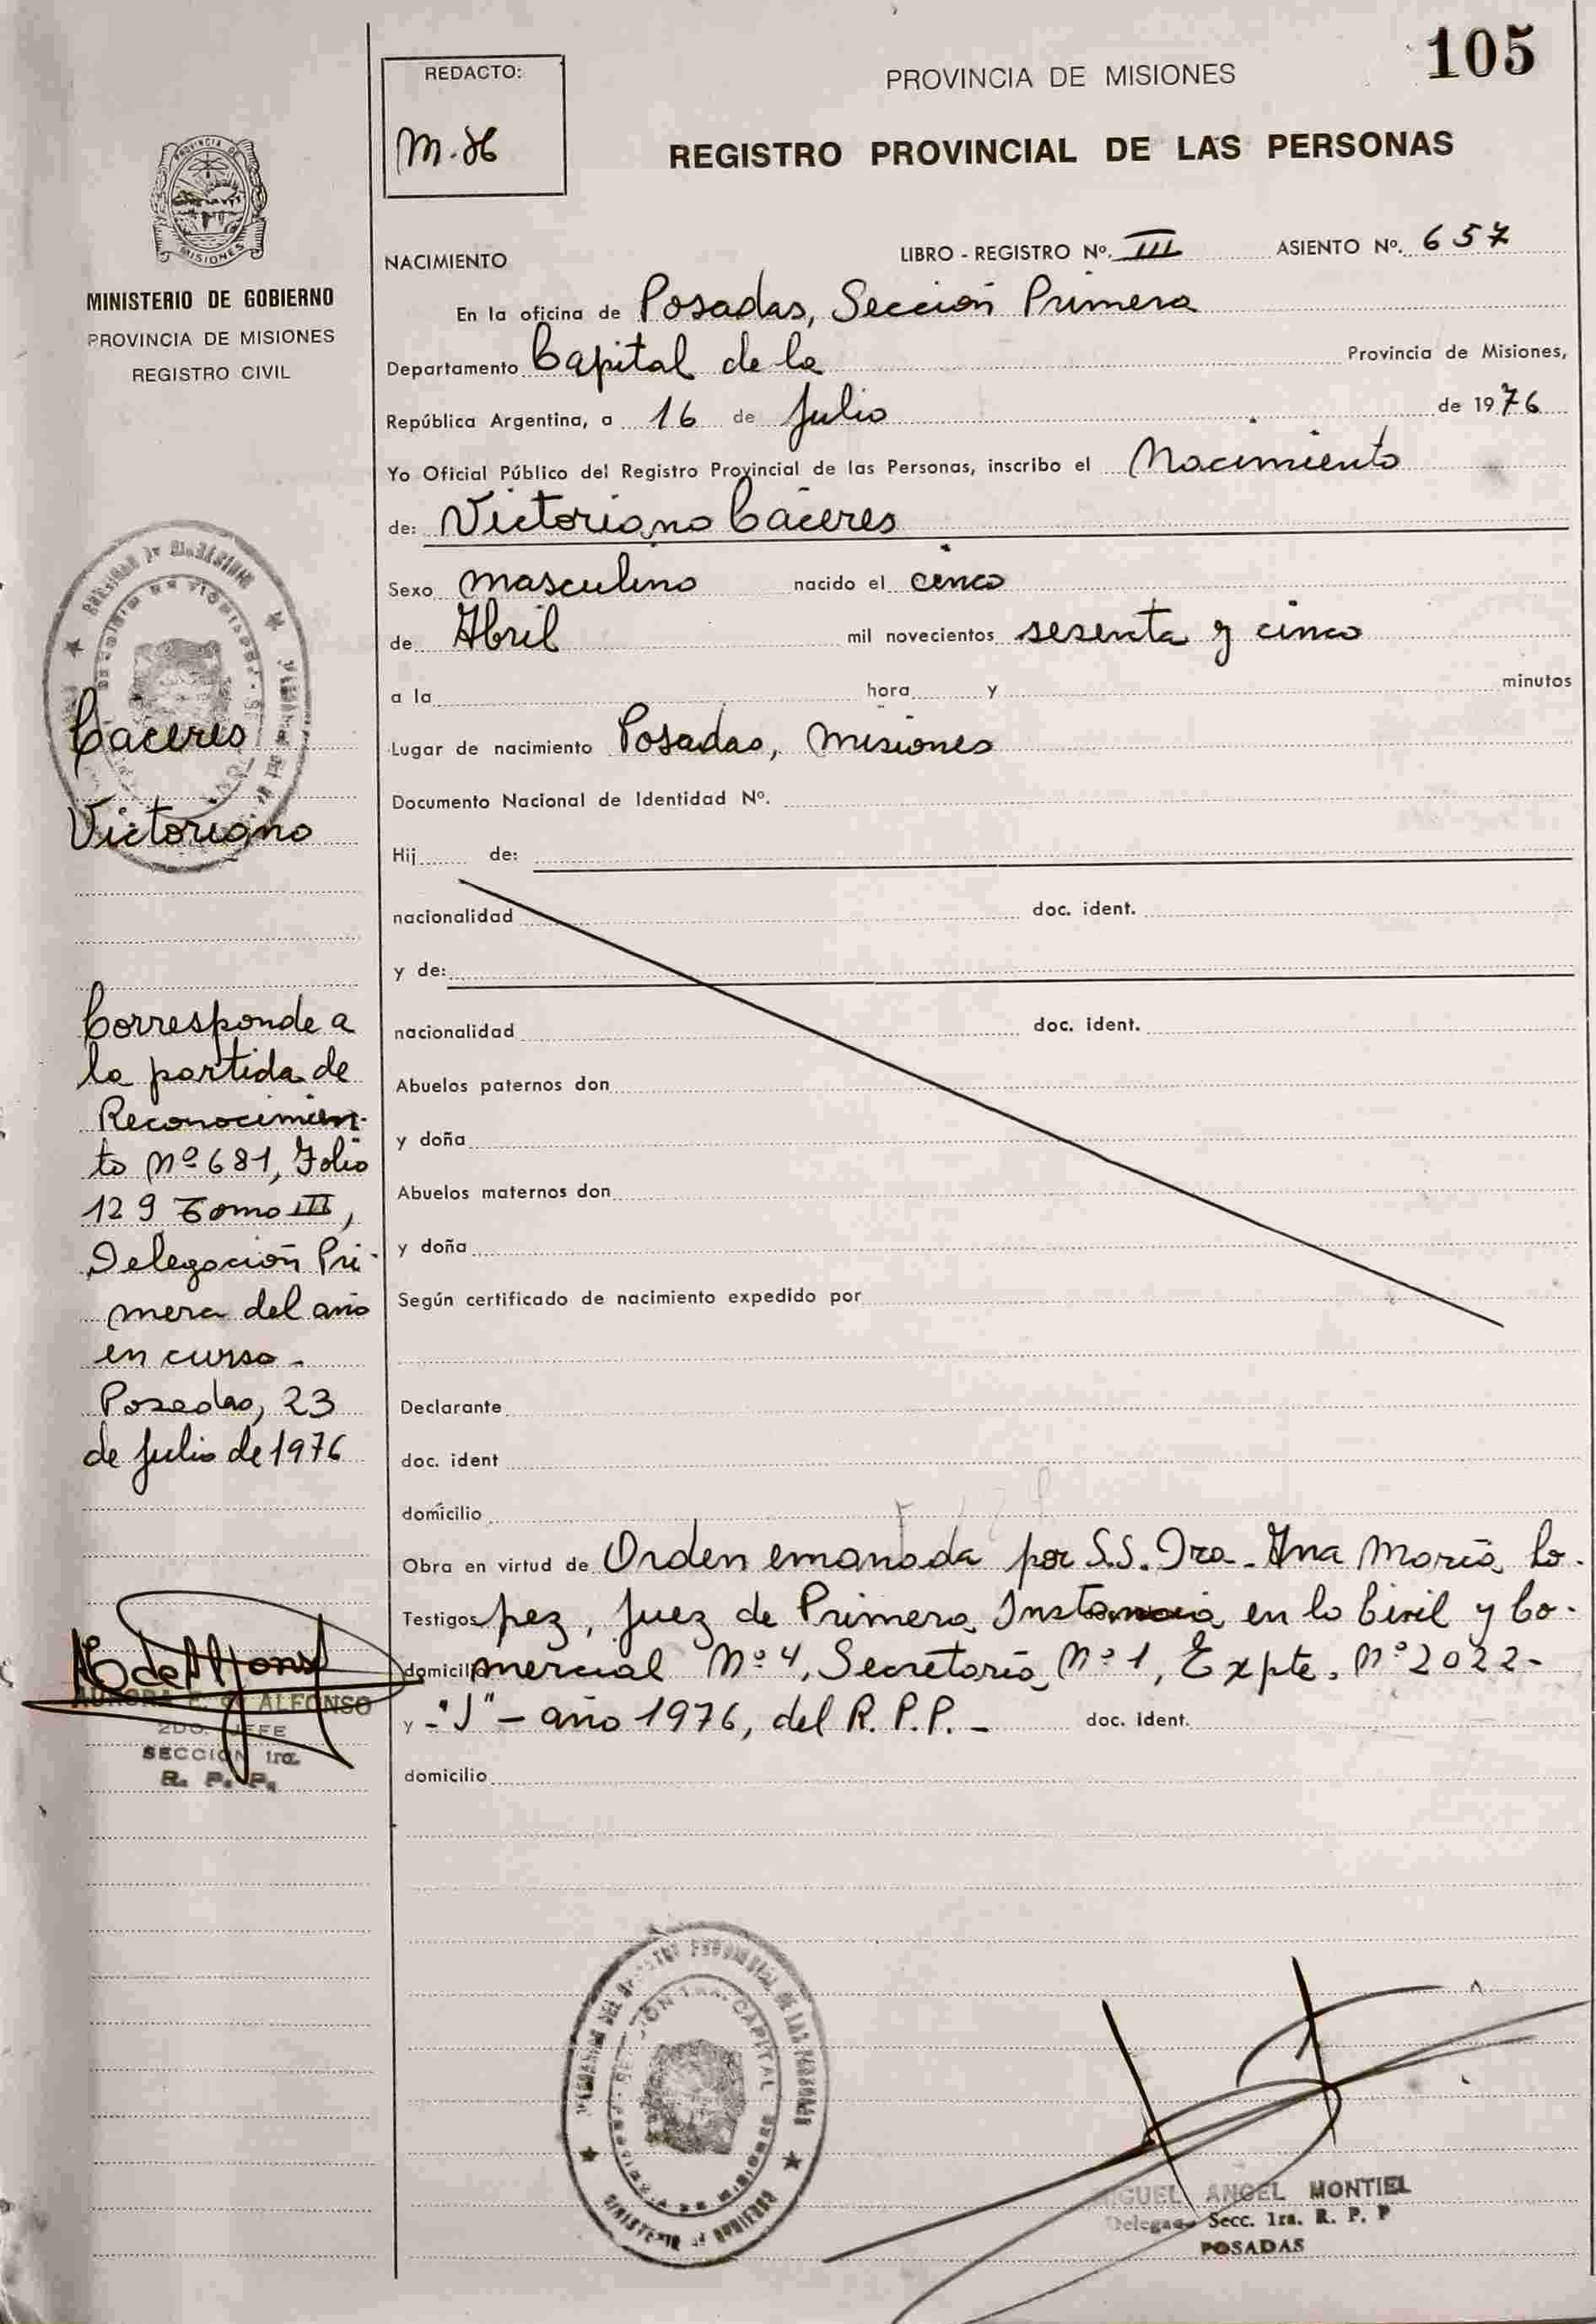 105
REDACTO:
PROVINCIA DE MISIONES
REGISTRO PROVINCIAL DE LAS PERSONAS
MISIONES
MINISTERIO DE GOBIERNO
PROVINCIA DE MISIONES
REGISTRO CIVIL
Caceres
Victoriano
Corresponde a
la partida de
Reconocimien-
to Nº 681, Folio
129 Tomo III,
Delegación Pri-
mera del año
en curso.
Posadas, 23
de Julio de 1976
ALFONSO
2DO. JEFE
SECCION 1ra.
R. P. P.
NACIMIENTO
LIBRO - REGISTRO Nº. III ASIENTO Nº. 657
En la oficina de Posadas, Sección Primera
Departamento Capital de la Provincia de Misiones,
República Argentina, a 16 de Julio de 1976
Yo Oficial Público del Registro Provincial de las Personas, inscribo el Nacimiento
de: Victoriano Cáceres
Sexo masculino nacido el cinco
de Abril mil novecientos sesenta y cinco
a la hora y minutos
Lugar de nacimiento Posadas, Misiones
Documento Nacional de Identidad Nº.
Hij de:
nacionalidad doc. ident.
y de:
nacionalidad doc. ident.
Abuelos paternos don
y doña
Abuelos maternos don
y doña
Según certificado de nacimiento expedido por
Declarante
doc. ident
domicilio
Obra en virtud de Orden emanada por S.S. Dra. Ana María Lo-
Testigos pez, Juez de Primera Instancia en lo Civil y Co-
domicilio mercial Nº 4, Secretaría Nº 1, Expte. Nº 2022-
y -"J"- año 1976, del R. P. P. - doc. ident.
domicilio
CAPITAL
MIGUEL ANGEL MONTIEL
Delegado Secc. 1ra. R. P. P
POSADAS